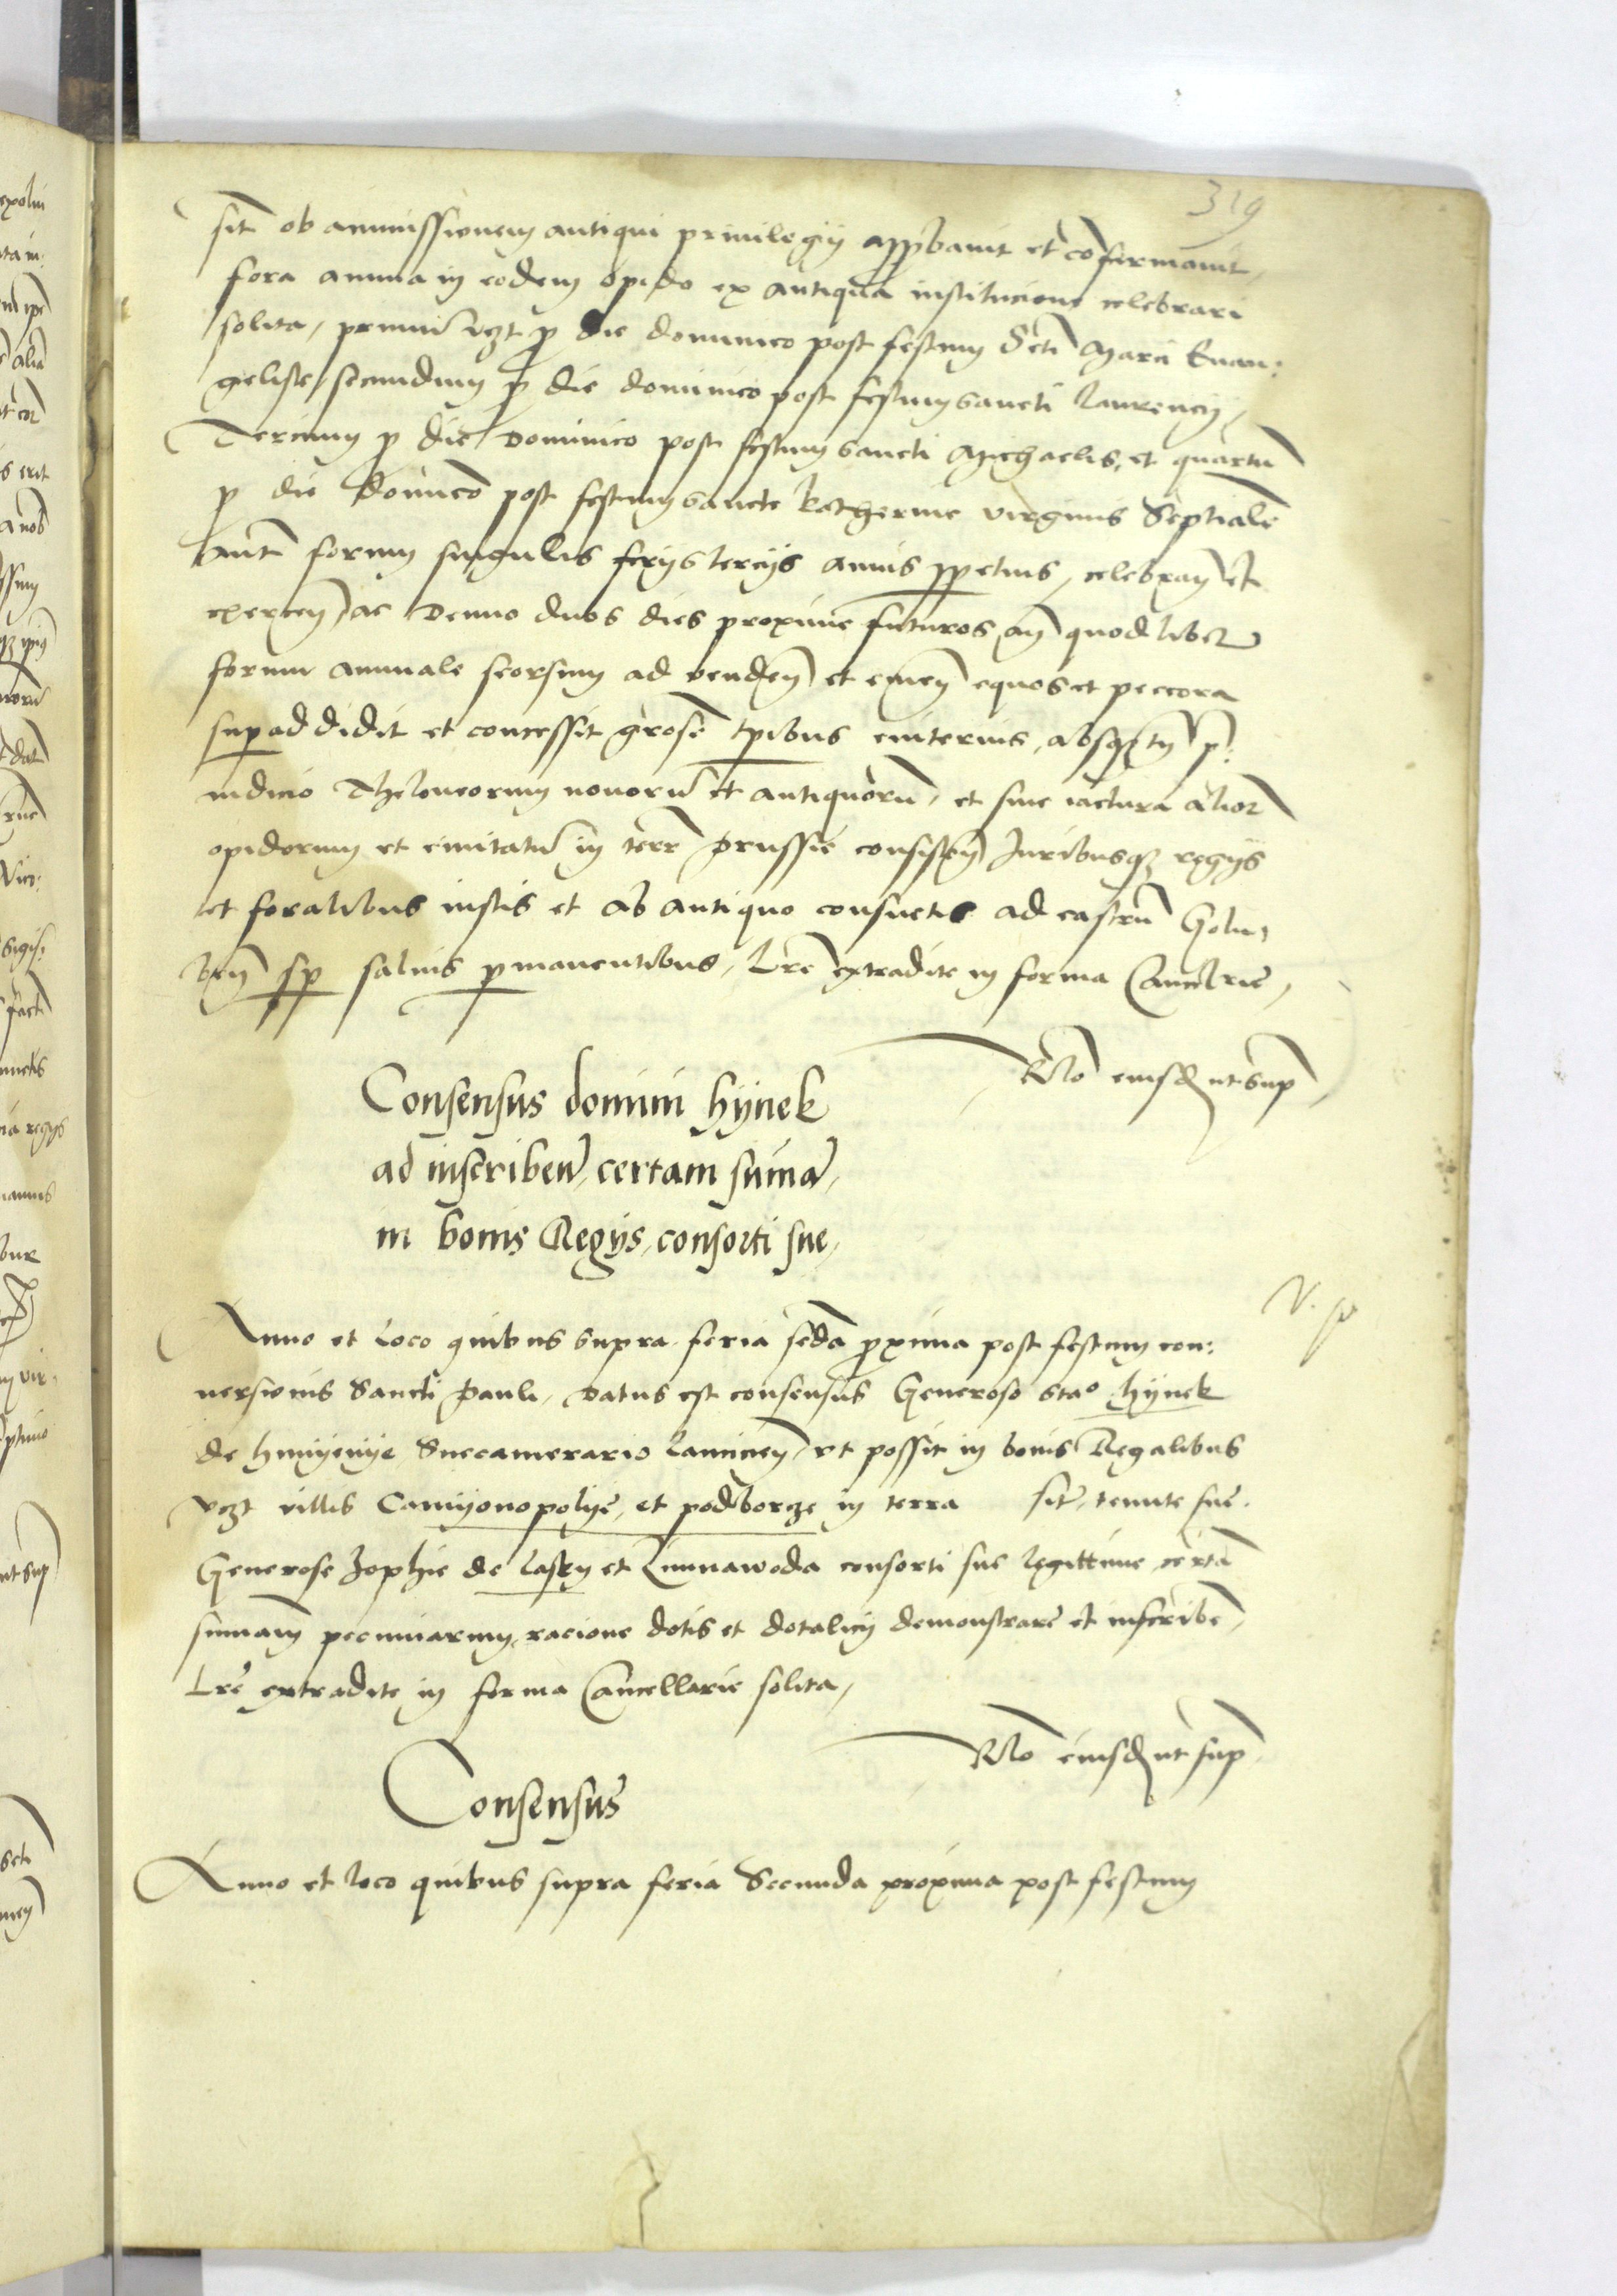 319
sit ob ammissionem antiqui privilegij approbavit et confirmavit,
fora annua in eodem opido ex antiqua institucione celebrari
solita, primu vz p die dominico post festum Scti Marci Evan:
geliste, secundum p die dominico post festum sancti Laurencij,
Tercium p die dominico post festum sancti Michaelis, et quartu
p die dominco post festum sancte katherine virginis Septiale
aut forum singulis ferijs tercijs annis ppetuis, celebran et
exercen, ac denno duos dies proxime futuros an quodlibet
forum annuale seorsum ad venden et emen equos et peccora
supaddidit et concessit grose tpibus eviternis, absq tn p:
iudicio Theloneorum novoru et antiquoru, et sine iactura alior
opidorum et civitatu in terr Prussie consisten Juribusq regijs
et foralibus iustis et ab antiquo consuetis ad castru Golu:
ben sp salvis pmanentibus, Lre extradite in forma Cancelrie,
Rlo eiusd ut sup
Consensus domini hÿnek
ad inscriben, certam suma,
in bonis Regijs, consorti sue,
Anno et loco quibus supra feria scda pxima post festum con:
versionis Sancti Pauli, datus est consensus Generoso Stao hÿnek
de hmÿenÿe Succamerario Lancicien, ut possit in bonis Regalibus
vz villis Camÿonopolÿe, et podborze in terra sit, tenute sue.
Generose Zophie de lasky et Lunawoda consorti sue legittime, certa
summam pecuniarum, racione dotis et dotalicij demonstrare et inscribe,
Lre extradite in forma Cancellarie solita,
Rlo eiusd ut sup
Consensus
Anno et loco quibus supra feria Secunda proxima post festum